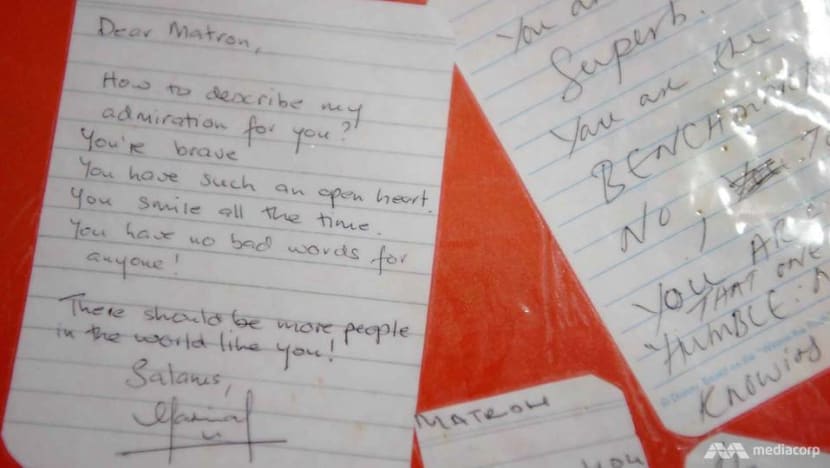 Dear Matron,
How to describe my
admiration for you?
You're brave
You have such an open heart.
You smile all the time.
You have no bad words for
anyone!
There should be more people
in the world like you!
You a
Superb.
You are the
BENCHMARK
No!
YOU AR
THAT ONE
"HUMBLE
Knowing
MATRON
you
mediacorp